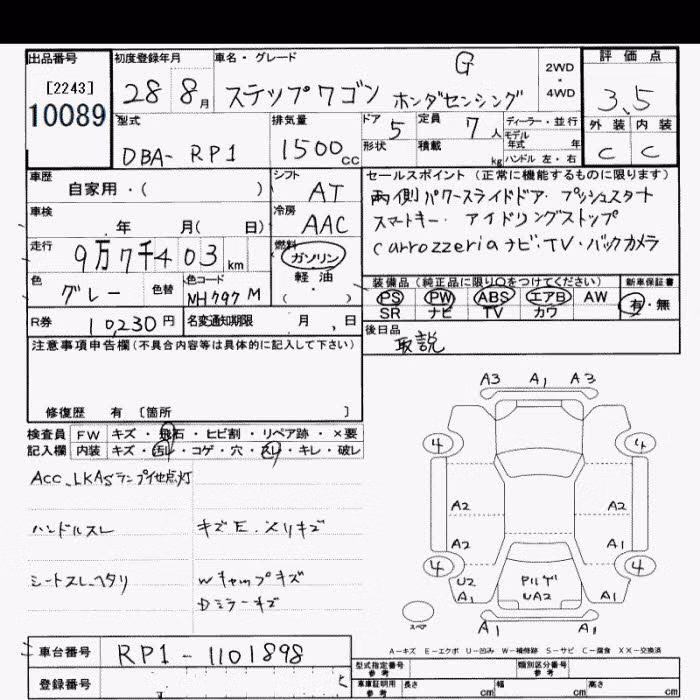 出品番号 初度登録年月 車名・グレード 評価点
[2243] 28 8月 ステップワゴン G ホンダセンシング 2WD・4WD 3.5
10089
型式 排気量 ドア 5 定員 7人 ディーラー・並行 外装 内装
DBA- RP1 1500cc 形状 積載 kg モデル年式 年 C C
ハンドル 左・右
車歴 シフト セールスポイント(正常に機能するものに限ります)
自家用・( ) AT 両側パワースライドドア・プッシュスタート
車検 冷房 スマートキー・アイドリングストップ
年 月( 日) AAC carrozzeriaナビ・TV・バックカメラ
走行 9万7千403km 燃料 ガソリン
軽・油
( )
色 グレー 色替 色コード NH797M
装備品(純正品に限り○をつけてください) 新車保証書
PS PW ABS エアB AW 有・無
SR ナビ TV カワ
R券 10,230円 名変通知期限 月 日 後日品
取説
注意事項申告欄(不具合内容等は具体的に記入して下さい)
修復歴 有 〔箇所 〕
検査員 FW キズ・飛石・ヒビ割・リペア跡・×要
記入欄 内装 キズ・汚レ・コゲ・穴・スレ・キレ・破レ
ACC、LKASランプ他点灯
ハンドルスレ キズE.メリキズ
シートスレ、ヘタリ Wキャップキズ
Dミラーキズ
A3 A1 A3
4 4
A2 A2
A2 A1
4 4
U2 A1 UA2 A1
スペア A1 A1
A-キズ E-エクボ U-凹み W-補修跡 S-サビ C-腐食 XX-交換済
車台番号 RP1-1101898
型式指定番号 参考 類別区分番号 参考
登録番号 車庫証明用 参考 長さ cm 幅 cm 高さ cm